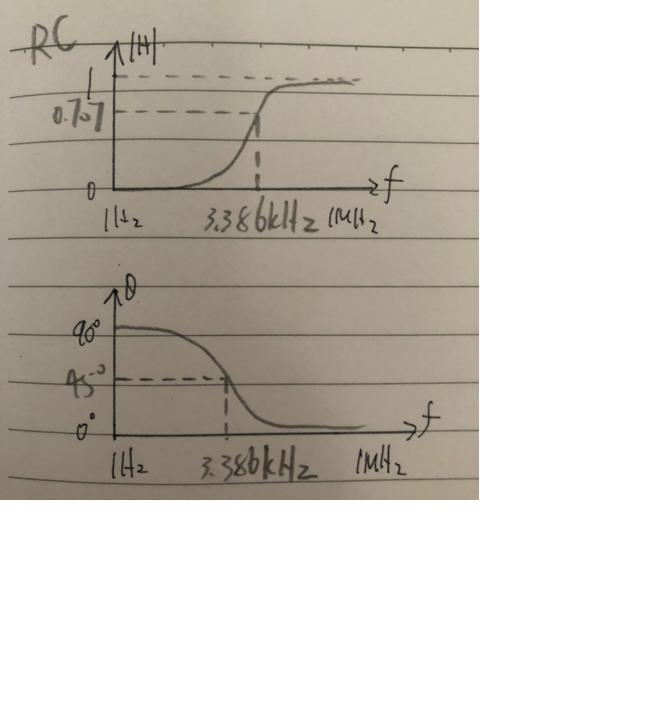 RC
|H|
1
0.707
0
f
1Hz 3.386kHz 1MHz
θ
90°
45°
0°
f
1Hz 3.386kHz 1MHz